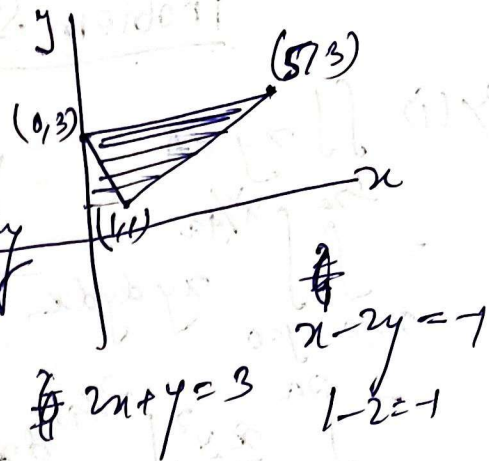 y
(5,3)
(0,3)
x
(1,1)
y
x-2y=-1
2x+y=3
1-2=-1